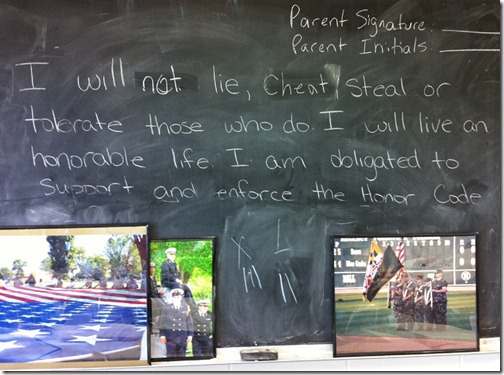 Parent Signature:
Parent Initials:
I will not lie, Cheat, Steal or
tolerate those who do. I will live an
honorable life. I am obligated to
support and enforce the Honor Code
X L